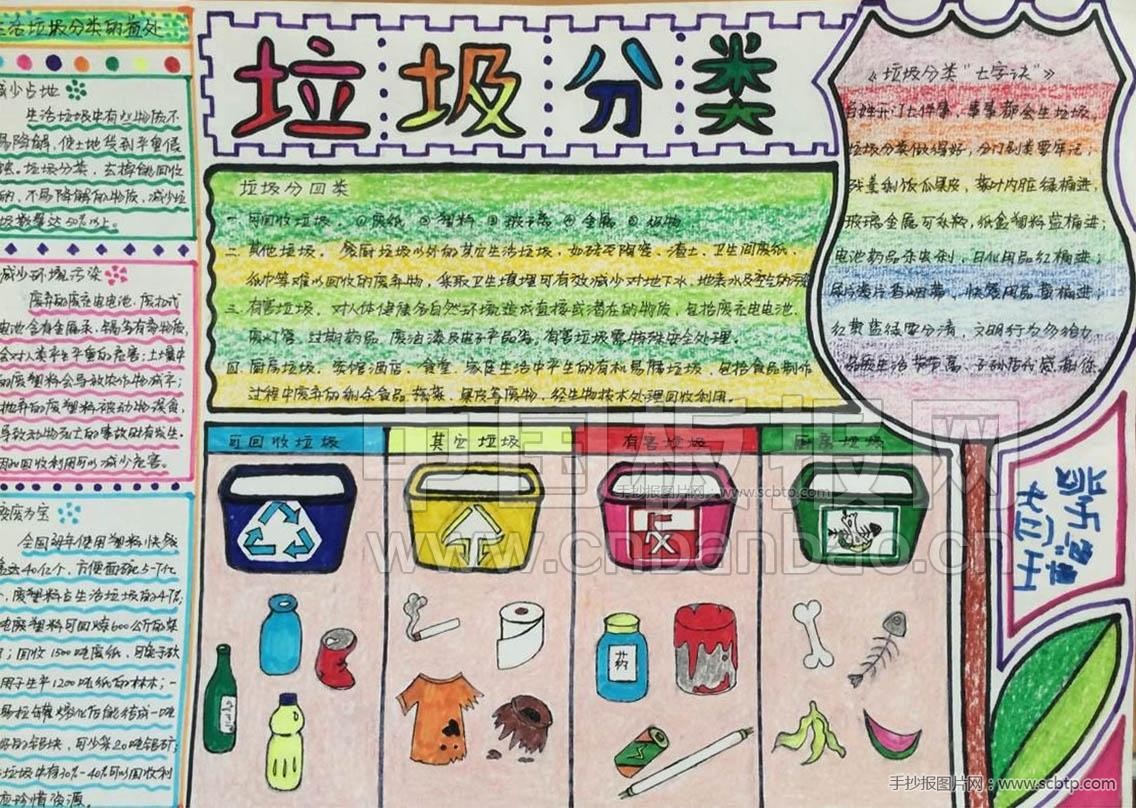 生活垃圾分类的益处
减少占地
生活垃圾中有些物质不
易降解,使土地受到严重侵
蚀。垃圾分类,去掉能回收
的,不易降解的物质,减少垃
圾数量达50%以上。
减少环境污染
废弃的废充电电池,废扣式
电池含有金属汞、镉等有毒物质,
会对人类产生严重的危害;土壤中
的废塑料会导致农作物减产;
抛弃的废塑料被动物误食,
导致动物死亡的事故时有发生。
因此回收利用可以减少危害。
变废为宝
全国每年使用塑料快餐
盒达40亿个,方便面碗5-7亿
个,废塑料占生活垃圾的4-7%;
1500吨废纸,
1200吨纸的林木;一
易拉罐熔化后能结成一吨
好的铝块,可少采20吨铝矿;
垃圾中有30%-40%可以回收利
应珍惜资源。
垃圾分类
垃圾分四类
一.可回收垃圾 ①废纸 ②塑料 ③玻璃 ④金属 ⑤织物
二.其他垃圾。餐厨垃圾以外的其它生活垃圾,如砖瓦陶瓷、渣土、卫生间废纸、
纸巾等难以回收的废弃物,采取卫生填埋可有效减少对地下水,地表水及空气的污染
三.有害垃圾。对人体健康各自然环境造成直接或潜在的物质,包括废充电电池、
废灯管、过期药品、废油漆及电子产品等,有害垃圾需特殊安全处理。
四.厨房垃圾。宾馆酒店、食堂、家庭生活中产生的有机易腐垃圾,包括食品制作
过程中废弃的剩余食品、蔬菜、果皮等废物,经生物技术处理回收利用。
《垃圾分类"七字诀"》
百姓开门七件事,事事都会生垃圾,
垃圾分类做得好,分门别类要牢记;
残羹剩饭瓜果皮,菜叶内脏绿桶进;
玻璃金属可乐瓶,纸盒塑料蓝桶进;
电池药品杀虫剂,日化用品红桶进;
尿片瓷片香烟蒂,快餐用品黄桶进;
红黄蓝绿要分清,文明行为多给力,
低碳生活节节高,子孙后代感谢你。
可回收垃圾
其它垃圾
有害垃圾
厨房垃圾
药
中国板报网
www.cnbanbao.cn
手抄报图片网:www.scbtp.com
手抄报图片网:www.scbtp.com